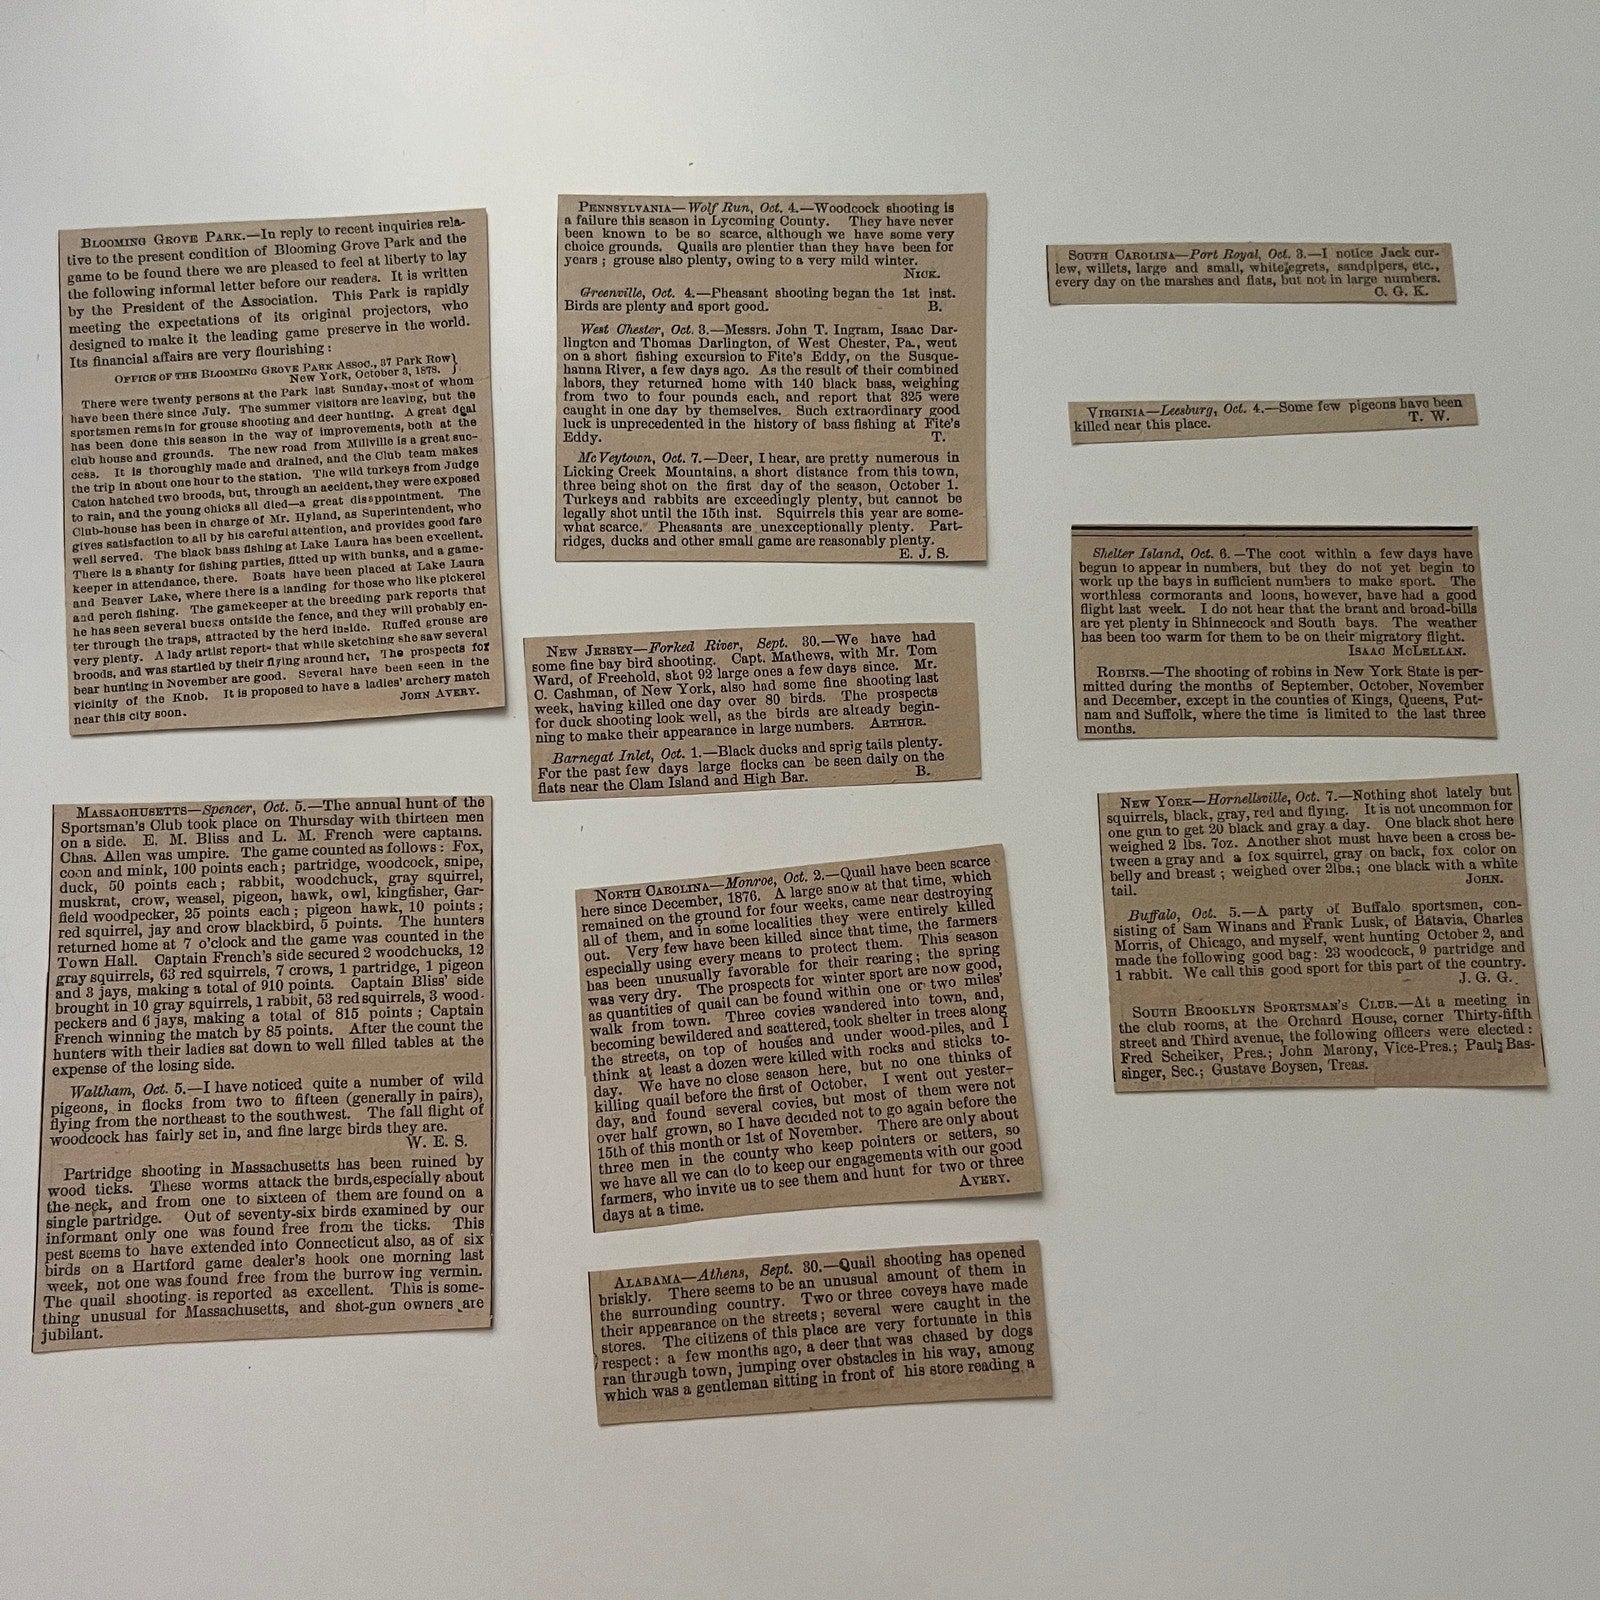 BLOOMING GROVE PARK.—In reply to recent inquiries rela-
tive to the present condition of Blooming Grove Park and the
game to be found there we are pleased to feel at liberty to lay
the following informal letter before our readers. It is written
by the President of the Association. This Park is rapidly
meeting the expectations of its original projectors, who
designed to make it the leading game preserve in the world.
Its financial affairs are very flourishing:
OFFICE OF THE BLOOMING GROVE PARK ASSOC., 37 Park Row}
New York, October 3, 1878. }
There were twenty persons at the Park last Sunday, most of whom
have been there since July. The summer visitors are leaving, but the
sportsmen remain for grouse shooting and deer hunting. A great deal
has been done this season in the way of improvements, both at the
club house and grounds. The new road from Millville is a great suc-
cess. It is thoroughly made and drained, and the Club team makes
the trip in about one hour to the station. The wild turkeys from Judge
Caton hatched two broods, but, through an accident, they were exposed
to rain, and the young chicks all died—a great disappointment. The
Club-house has been in charge of Mr. Hyland, as Superintendent, who
gives satisfaction to all by his careful attention, and provides good fare
well served. The black bass fishing at Lake Laura has been excellent.
There is a shanty for fishing parties, fitted up with bunks, and a game-
keeper in attendance, there. Boats have been placed at Lake Laura
and Beaver Lake, where there is a landing for those who like pickerel
and perch fishing. The gamekeeper at the breeding park reports that
he has seen several bucks outside the fence, and they will probably en-
ter through the traps, attracted by the herd inside. Ruffed grouse are
very plenty. A lady artist reports that while sketching she saw several
broods, and was startled by their flying around her. The prospects for
bear hunting in November are good. Several have been seen in the
vicinity of the Knob. It is proposed to have a ladies' archery match
near this city soon. JOHN AVERY.
MASSACHUSETTS—Spencer, Oct. 5.—The annual hunt of the
Sportsman's Club took place on Thursday with thirteen men
on a side. E. M. Bliss and L. M. French were captains.
Chas. Allen was umpire. The game counted as follows: Fox,
coon and mink, 100 points each; partridge, woodcock, snipe,
duck, 50 points each; rabbit, woodchuck, gray squirrel,
muskrat, crow, weasel, pigeon, hawk, owl, kingfisher, Gar-
field woodpecker, 25 points each; pigeon hawk, 10 points;
red squirrel, jay and crow blackbird, 5 points. The hunters
returned home at 7 o'clock and the game was counted in the
Town Hall. Captain French's side secured 2 woodchucks, 12
gray squirrels, 63 red squirrels, 7 crows, 1 partridge, 1 pigeon
and 3 jays, making a total of 910 points. Captain Bliss' side
brought in 10 gray squirrels, 1 rabbit, 53 red squirrels, 3 wood-
peckers and 6 jays, making a total of 815 points; Captain
French winning the match by 85 points. After the count the
hunters with their ladies sat down to well filled tables at the
expense of the losing side.
Waltham, Oct. 5.—I have noticed quite a number of wild
pigeons, in flocks from two to fifteen (generally in pairs),
flying from the northeast to the southwest. The fall flight of
woodcock has fairly set in, and fine large birds they are.
W. E. S.
Partridge shooting in Massachusetts has been ruined by
wood ticks. These worms attack the birds, especially about
the neck, and from one to sixteen of them are found on a
single partridge. Out of seventy-six birds examined by our
informant only one was found free from the ticks. This
pest seems to have extended into Connecticut also, as of six
birds on a Hartford game dealer's hook one morning last
week, not one was found free from the burrow ing vermin.
The quail shooting is reported as excellent. This is some-
thing unusual for Massachusetts, and shot-gun owners are
jubilant.
PENNSYLVANIA—Wolf Run, Oct. 4.—Woodcock shooting is
a failure this season in Lycoming County. They have never
been known to be so scarce, although we have some very
choice grounds. Quails are plentier than they have been for
years; grouse also plenty, owing to a very mild winter.
NICK.
Greenville, Oct. 4.—Pheasant shooting began the 1st inst.
Birds are plenty and sport good. B.
West Chester, Oct. 3.—Messrs. John T. Ingram, Isaac Dar-
lington and Thomas Darlington, of West Chester, Pa., went
on a short fishing excursion to Fite's Eddy, on the Susque-
hanna River, a few days ago. As the result of their combined
labors, they returned home with 140 black bass, weighing
from two to four pounds each, and report that 325 were
caught in one day by themselves. Such extraordinary good
luck is unprecedented in the history of bass fishing at Fite's
Eddy. T.
McVeytown, Oct. 7.—Deer, I hear, are pretty numerous in
Licking Creek Mountains, a short distance from this town,
three being shot on the first day of the season, October 1.
Turkeys and rabbits are exceedingly plenty, but cannot be
legally shot until the 15th inst. Squirrels this year are some-
what scarce. Pheasants are unexceptionally plenty. Part-
ridges, ducks and other small game are reasonably plenty.
E. J. S.
NEW JERSEY—Forked River, Sept. 30.—We have had
some fine bay bird shooting. Capt. Mathews, with Mr. Tom
Ward, of Freehold, shot 92 large ones a few days since. Mr.
C. Cashman, of New York, also had some fine shooting last
week, having killed one day over 80 birds. The prospects
for duck shooting look well, as the birds are already begin-
ning to make their appearance in large numbers. ARTHUR.
Barnegat Inlet, Oct. 1.—Black ducks and sprig tails plenty.
For the past few days large flocks can be seen daily on the
flats near the Clam Island and High Bar. B.
NORTH CAROLINA—Monroe, Oct. 2.—Quail have been scarce
here since December, 1876. A large snow at that time, which
remained on the ground for four weeks, came near destroying
all of them, and in some localities they were entirely killed
out. Very few have been killed since that time, the farmers
especially using every means to protect them. This season
has been unusually favorable for their rearing; the spring
was very dry. The prospects for winter sport are now good,
as quantities of quail can be found within one or two miles'
walk from town. Three covies wandered into town, and,
becoming bewildered and scattered, took shelter in trees along
the streets, on top of houses and under wood-piles, and I
think at least a dozen were killed with rocks and sticks to-
day. We have no close season here, but no one thinks of
killing quail before the first of October. I went out yester-
day, and found several covies, but most of them were not
over half grown, so I have decided not to go again before the
15th of this month or 1st of November. There are only about
three men in the county who keep pointers or setters, so
we have all we can do to keep our engagements with our good
farmers, who invite us to see them and hunt for two or three
days at a time. AVERY.
ALABAMA—Athens, Sept. 30.—Quail shooting has opened
briskly. There seems to be an unusual amount of them in
the surrounding country. Two or three coveys have made
their appearance on the streets; several were caught in the
stores. The citizens of this place are very fortunate in this
respect: a few months ago, a deer that was chased by dogs
ran through town, jumping over obstacles in his way, among
which was a gentleman sitting in front of his store reading a
SOUTH CAROLINA—Port Royal, Oct. 3.—I notice Jack cur-
lew, willets, large and small, white egrets, sandpipers, etc.,
every day on the marshes and flats, but not in large numbers.
C. G. K.
VIRGINIA—Leesburg, Oct. 4.—Some few pigeons have been
killed near this place. T. W.
Shelter Island, Oct. 6.—The coot within a few days have
begun to appear in numbers, but they do not yet begin to
work up the bays in sufficient numbers to make sport. The
worthless cormorants and loons, however, have had a good
flight last week. I do not hear that the brant and broad-bills
are yet plenty in Shinnecock and South bays. The weather
has been too warm for them to be on their migratory flight.
ISAAC MCLELLAN.
ROBINS.—The shooting of robins in New York State is per-
mitted during the months of September, October, November
and December, except in the counties of Kings, Queens, Put-
nam and Suffolk, where the time is limited to the last three
months.
NEW YORK—Hornellsville, Oct. 7.—Nothing shot lately but
squirrels, black, gray, red and flying. It is not uncommon for
one gun to get 20 black and gray a day. One black shot here
weighed 2 lbs. 7oz. Another shot must have been a cross be-
tween a gray and a fox squirrel, gray on back, fox color on
belly and breast; weighed over 2lbs.; one black with a white
tail. JOHN.
Buffalo, Oct. 5.—A party of Buffalo sportsmen, con-
sisting of Sam Winans and Frank Lusk, of Batavia, Charles
Morris, of Chicago, and myself, went hunting October 2, and
made the following good bag: 23 woodcock, 9 partridge and
1 rabbit. We call this good sport for this part of the country.
J. G. G.
SOUTH BROOKLYN SPORTSMAN'S CLUB.—At a meeting in
the club rooms, at the Orchard House, corner Thirty-fifth
street and Third avenue, the following officers were elected:
Fred Scheiker, Pres.; John Marony, Vice-Pres.; Paul Bas-
singer, Sec.; Gustave Boysen, Treas.